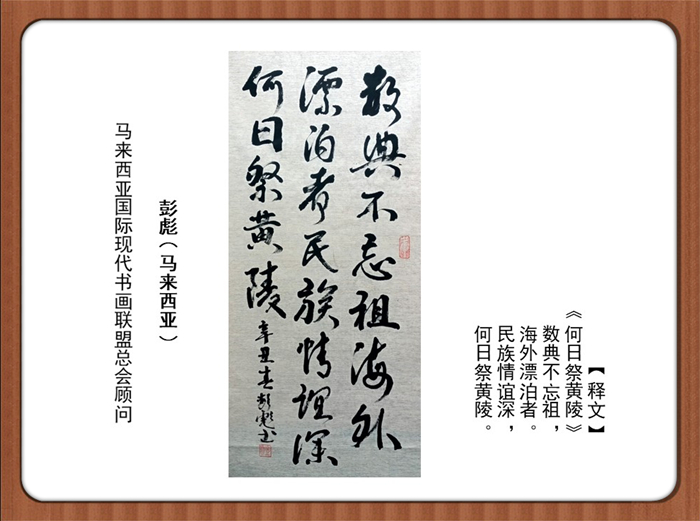 【释文】
《何日祭黄陵》
数典不忘祖，
海外漂泊者。
民族情谊深，
何日祭黄陵。
数典不忘祖海外
漂泊者民族情谊深
何日祭黄陵辛丑春彭彪书
彭彪（马来西亚）
马来西亚国际现代书画联盟总会顾问